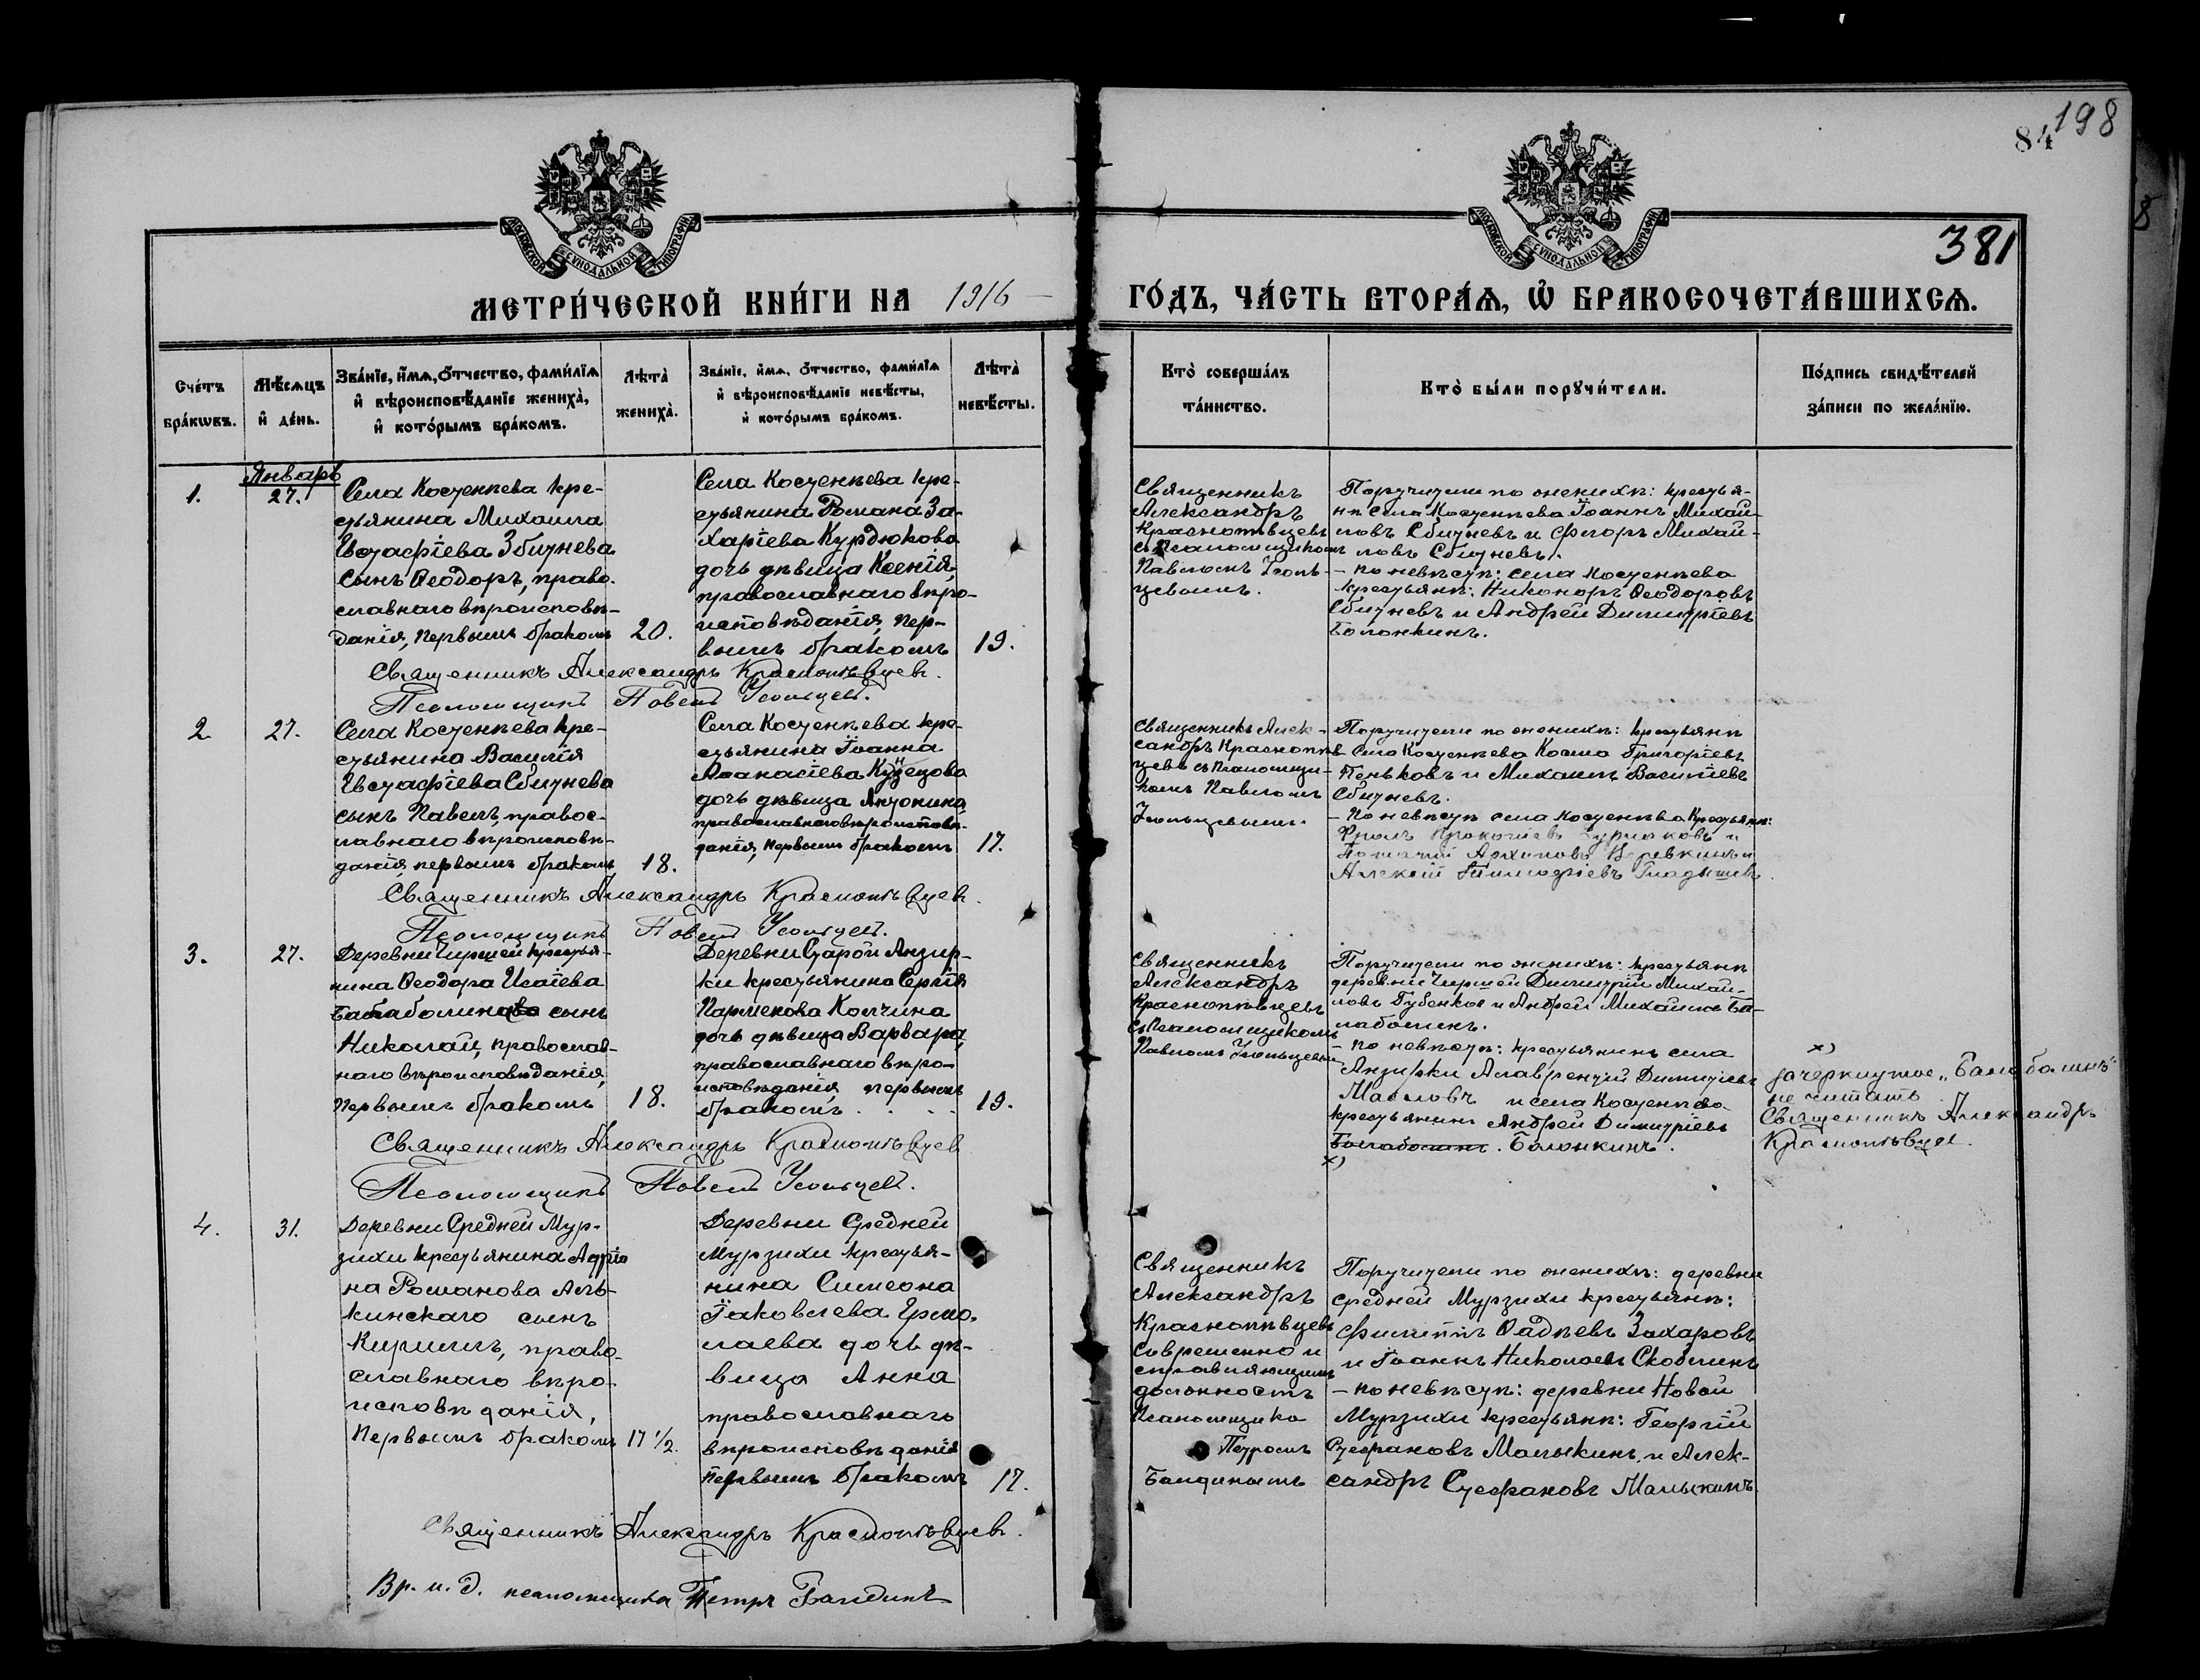 198
84
381
МОСКОВСКОЙ СУНОДАЛЬНОЙ ТИПОГРАФІИ
МОСКОВСКОЙ СУНОДАЛЬНОЙ ТИПОГРАФІИ
МЕТРИ́ЧЕСКОЙ КНИ́ГИ НА 1916 ГО́ДЪ, ЧА́СТЬ ВТОРА́Ѧ, Ѽ БРАКОСОЧЕТА́ВШИХСѦ.
Сче́тъ бра́кѡвъ.
Мѣ́сѧцъ и́ де́нь.
Зва́нїе, и́мѧ, ѻ́тчество, фами́лїѧ
и́ вѣроисповѣ́данїе жениха̀,
и́ кото́рымъ бра́комъ.
Лѣта̀ жениха̀.
Зва́нїе, и́мѧ, ѻ́тчество, фами́лїѧ
и́ вѣроисповѣ́данїе невѣ́сты,
и́ кото́рымъ бра́комъ.
Лѣта̀ невѣ́сты.
Кто̀ соверша́лъ та́инство.
Кто̀ бы́ли порꙋчи́тели.
По́дпись свидѣ́телей
за́писи по жела́нїю.
1.
Январь
27.
Села Костенеева кре-
стьянина Михаила
Евстафіева Збитнева
сынъ Ѳеодоръ, право-
славнаго вѣроисповѣ-
данія, первымъ бракомъ
20.
Села Костенеева кре-
стьянина Романа За-
харіева Курдюкова
дочь дѣвица Ксенія,
православнаго вѣро-
исповѣданія, пер-
вымъ бракомъ
19.
Священникъ
Александръ
Краснопѣвцевъ
съ Псаломщикомъ
Павломъ Усоль-
цевымъ.
Поручители по женихѣ: крестья-
не села Костенеева Іоаннъ Михай-
ловъ Сбитневъ и Флоръ Михай-
ловъ Сбитневъ.
- По невѣстѣ: села Костенеева
крестьяне: Никоноръ Ѳеодоровъ
Сбитневъ и Андрей Димитріевъ
Болонкинъ.
Священникъ Александръ Краснопѣвцевъ.
Псаломщикъ Павелъ Усольцевъ.
2
27.
Села Костенеева кре-
стьянина Василія
Евстафіева Сбитнева
сынъ Павелъ, правос-
лавнаго вѣроисповѣ-
данія, первымъ бракомъ
18.
Села Костенеева кре-
стьянина Іоанна
Аѳанасіева Кузнецова
дочь дѣвица Антонина,
православнаго вѣроисповѣ-
данія, первымъ бракомъ
17.
Священникъ Алек-
сандръ Краснопѣв-
цевъ съ Псаломщи-
комъ Павломъ
Усольцевымъ.
Поручители по женихѣ: крестьяне
села Костенеева Косма Григоріевъ
Пеньковъ и Михаилъ Василіевъ
Сбитневъ.
- По невѣстѣ села Костенеева крестьяне:
Алексій Тимоѳіевъ Гладышевъ.
Священникъ Александръ Краснопѣвцевъ.
Псаломщикъ Павелъ Усольцевъ.
3.
27.
Деревни Чиршей крестья-
нина Ѳеодора Исаіева
сынъ
Николай, православ-
наго вѣроисповѣданія,
первымъ бракомъ
18.
Деревни Старой Анзир-
ки крестьянина Сергія
Парменова Колчина
дочь дѣвица Варвара,
православнаго вѣро-
исповѣданія, первымъ
бракомъ . . . .
19.
Священникъ
Александръ
Краснопѣвцевъ
съ Псаломщикомъ
Павломъ Усольцевымъ
Поручители по женихѣ: крестьяне
деревни Чиршей Димитрій Михай-
ловъ Губенкое и Андрей Михайловъ Ба-
лаболинъ.
- По невѣстѣ: крестьянинъ села
Анзирки Лаврентій Димитріевъ
Масловъ и села Костенеева
крестьянинъ Андрей Димитріевъ
Балаболинъ. Болонкинъ.
х)
х)
зачеркнутое „Балаболинъ"
не читать
Священникъ Александръ
Краснопѣвцевъ.
Священникъ Александръ Краснопѣвцевъ
Псаломщикъ Павелъ Усольцевъ.
4.
31.
Деревни Средней Мур-
зихи крестьянина Адріа
на Романова Аль-
кинскаго сынъ
Кириллъ, право-
славнаго вѣро-
исповѣданія,
первымъ бракомъ
17 1/2.
Деревни Средней
Мурзихи крестья-
нина Симеона
Іаковлева Ермо-
лаева дочь дѣ-
вица Анна
православнаго
вѣроисповѣданія
первымъ бракомъ
17.
Священникъ
Александръ
Краснопѣвцевъ
съ временно и
справляющимъ
должность
Псаломщика
Петромъ
Бандинымъ
Поручители по женихѣ: деревни
Средней Мурзихи крестьяне:
Филиппъ Ѳадѣевъ Захаровъ
и Іоаннъ Николаевъ Скоблинъ
- по невѣстѣ: деревни Новой
Мурзихи крестьяне: Георгій
Стефановъ Малыкинъ и Алек-
сандръ Стефановъ Малыкинъ
Священникъ Александръ Краснопѣвцевъ.
Вр. и. д. псаломщика Петръ Бандинъ